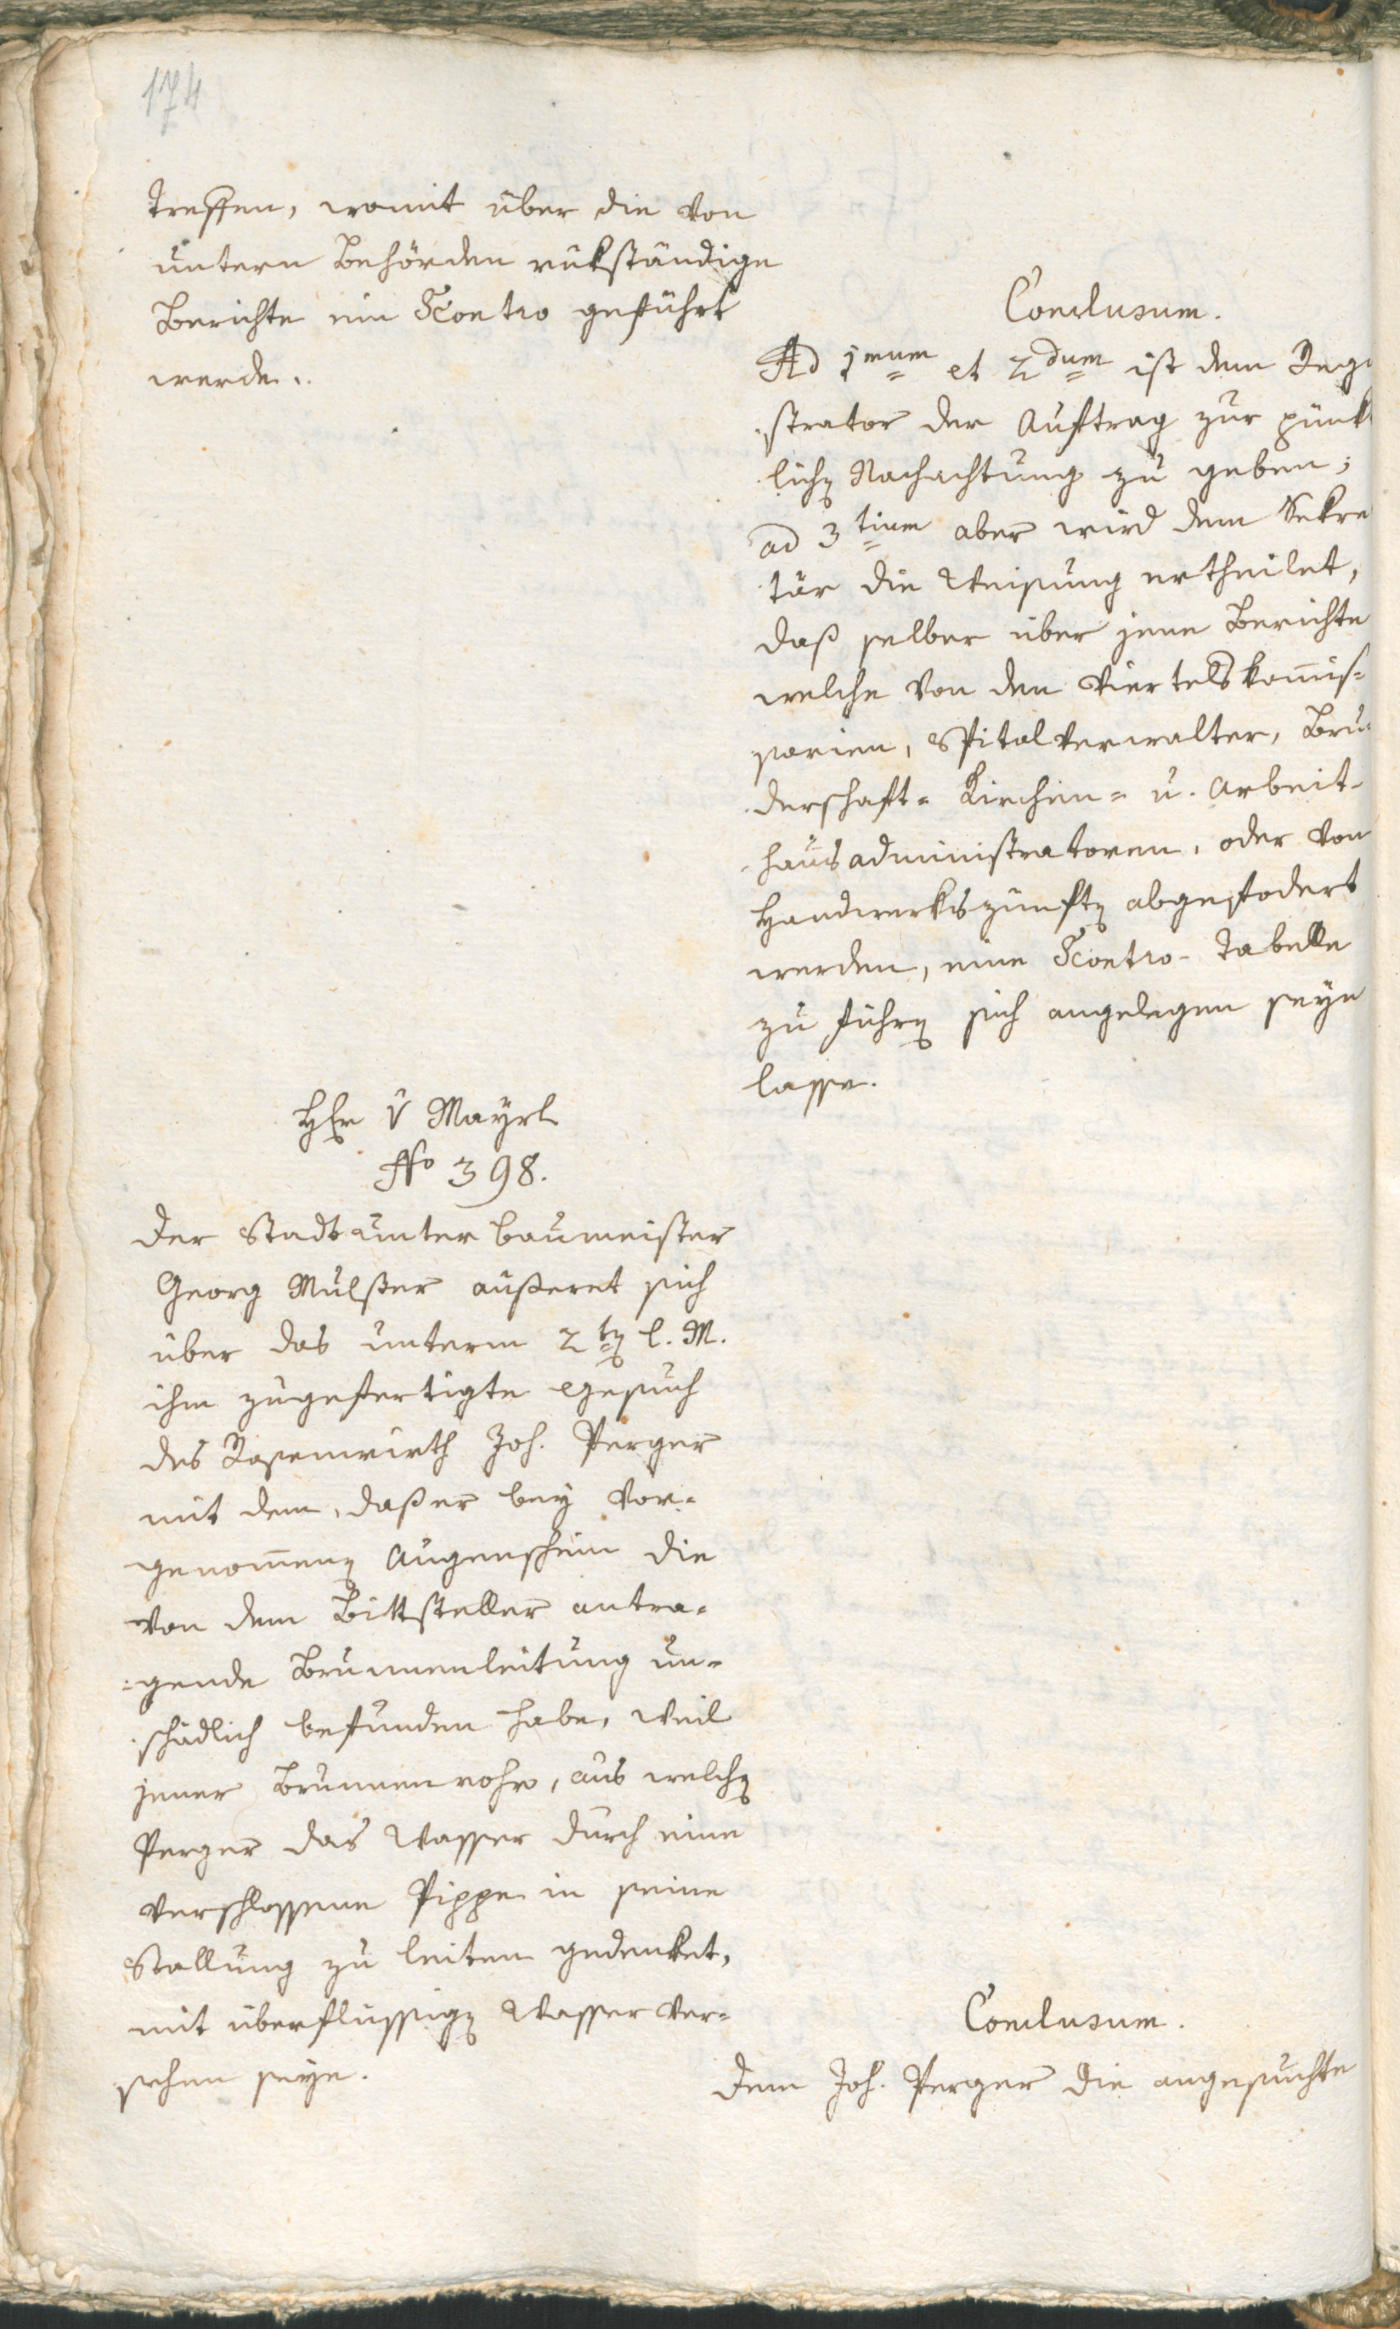 174
treffen, womit über die von
untern Behörden rükständige
Berichte ein Scontro geführt
werde.
Conclusum.
Ad 1mum et 2dum ist dem Regi
strator der Auftrag zur pünkt
lichen Nachachtung zu geben;
ad 3tium aber wird dem Sekre
tär die Weisung ertheilet,
daß selber über jene Berichte
welche von den Viertelskom̄is=
sarien, Spitalverwalter, Bru
derschaft= Kirchen= u. Arbeit-
hausadministratoren, oder von
Handwerkszünften abgefodert
werden, eine Scontro-Tabelle
zu führen sich angelegen seyn
lasse.
Hr v Mayrl
No 398.
Der Stadtunterbaumeister
Georg Mulßer äußeret sich
über das unterm 2ten l. M.
ihm zugefertigte Gesuch
des Rosenwirth Joh. Perger
mit dem, daß er bey vor=
genom̄enen Augenschein die
von dem Bittsteller antra=
=gende Brunnenleitung un=
schädlich befunden habe, weil
jener Brunnenrohr, aus welchen
Perger das Wasser durch eine
verschlossene Pippe in seine
Stallung zu leiten gedenket,
mit überflüssigen Wasser ver=
sehen seye.
Conclusum.
Dem Joh. Perger die angesuchte